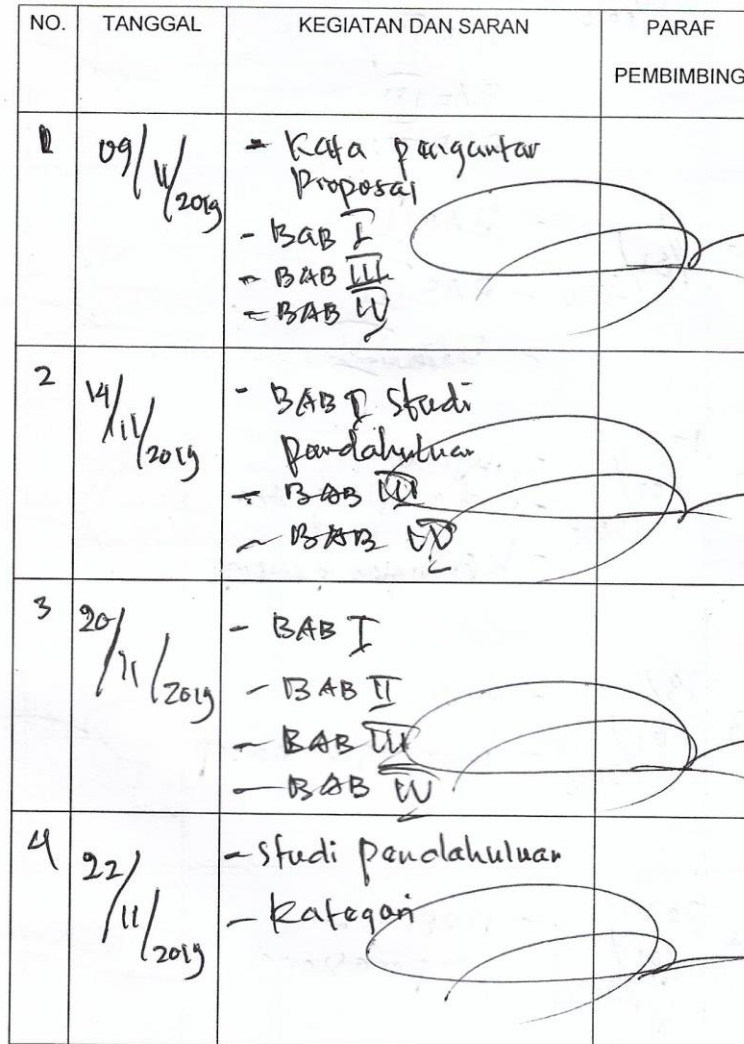 NO. TANGGAL KEGIATAN DAN SARAN PARAF
PEMBIMBING
1 09/11/2019 - Kata pengantar
Proposal
- BAB I
- BAB III
- BAB IV
2 14/11/2019 - BAB I Studi
pendahuluan
- BAB III
- BAB IV
3 20/11/2019 - BAB I
- BAB II
- BAB III
- BAB IV
4 22/11/2019 - Studi pendahuluan
- Kategori